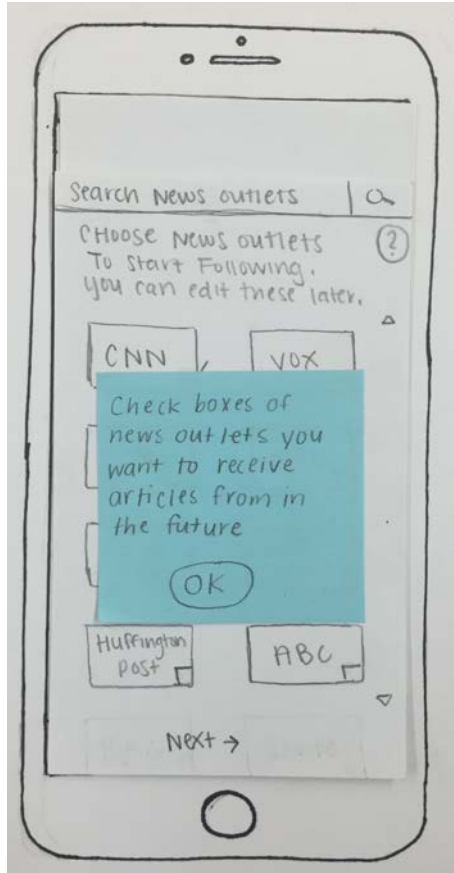 Search News outlets
CHOOSE News outlets
To start Following.
you can edit these later.
?
CNN
VOX
Check boxes of
news outlets you
want to receive
articles from in
the future
OK
Huffington
Post
ABC
Next →